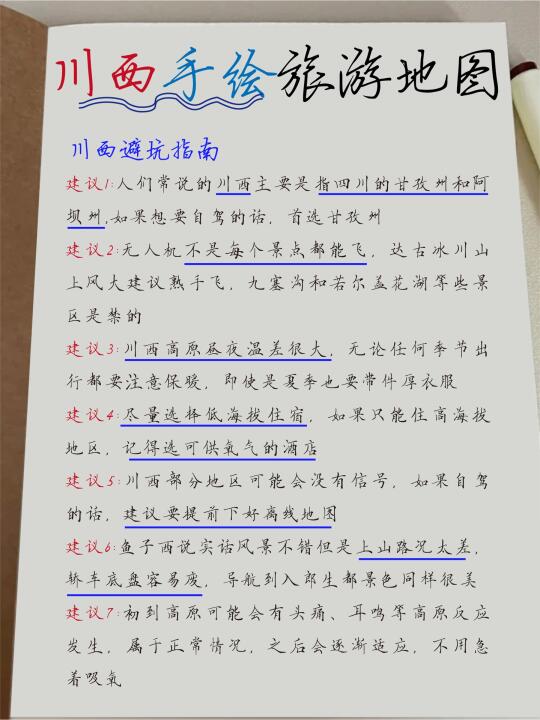 川西手绘旅游地图
川西避坑指南
建议1:人们常说的川西主要是指四川的甘孜州和阿
坝州,如果想要自驾的话,首选甘孜州
建议2:无人机不是每个景点都能飞,达古冰川山
上风大建议熟手飞,九塞沟和若尔盖花湖等些景
区是禁的
建议3:川西高原昼夜温差很大,无论任何季节出
行都要注意保暖,即使是夏季也要带件厚衣服
建议4:尽量选择低海拔住宿,如果只能住高海拔
地区,记得选可供氧气的酒店
建议5:川西部分地区可能会没有信号,如果自驾
的话,建议要提前下好离线地图
建议6:鱼子西说实话风景不错但是上山路况太差,
轿车底盘容易废,导航到入郎生都景色同样很美
建议7:初到高原可能会有头痛、耳鸣等高原反应
发生,属于正常情况,之后会逐渐适应,不用急
着吸氧